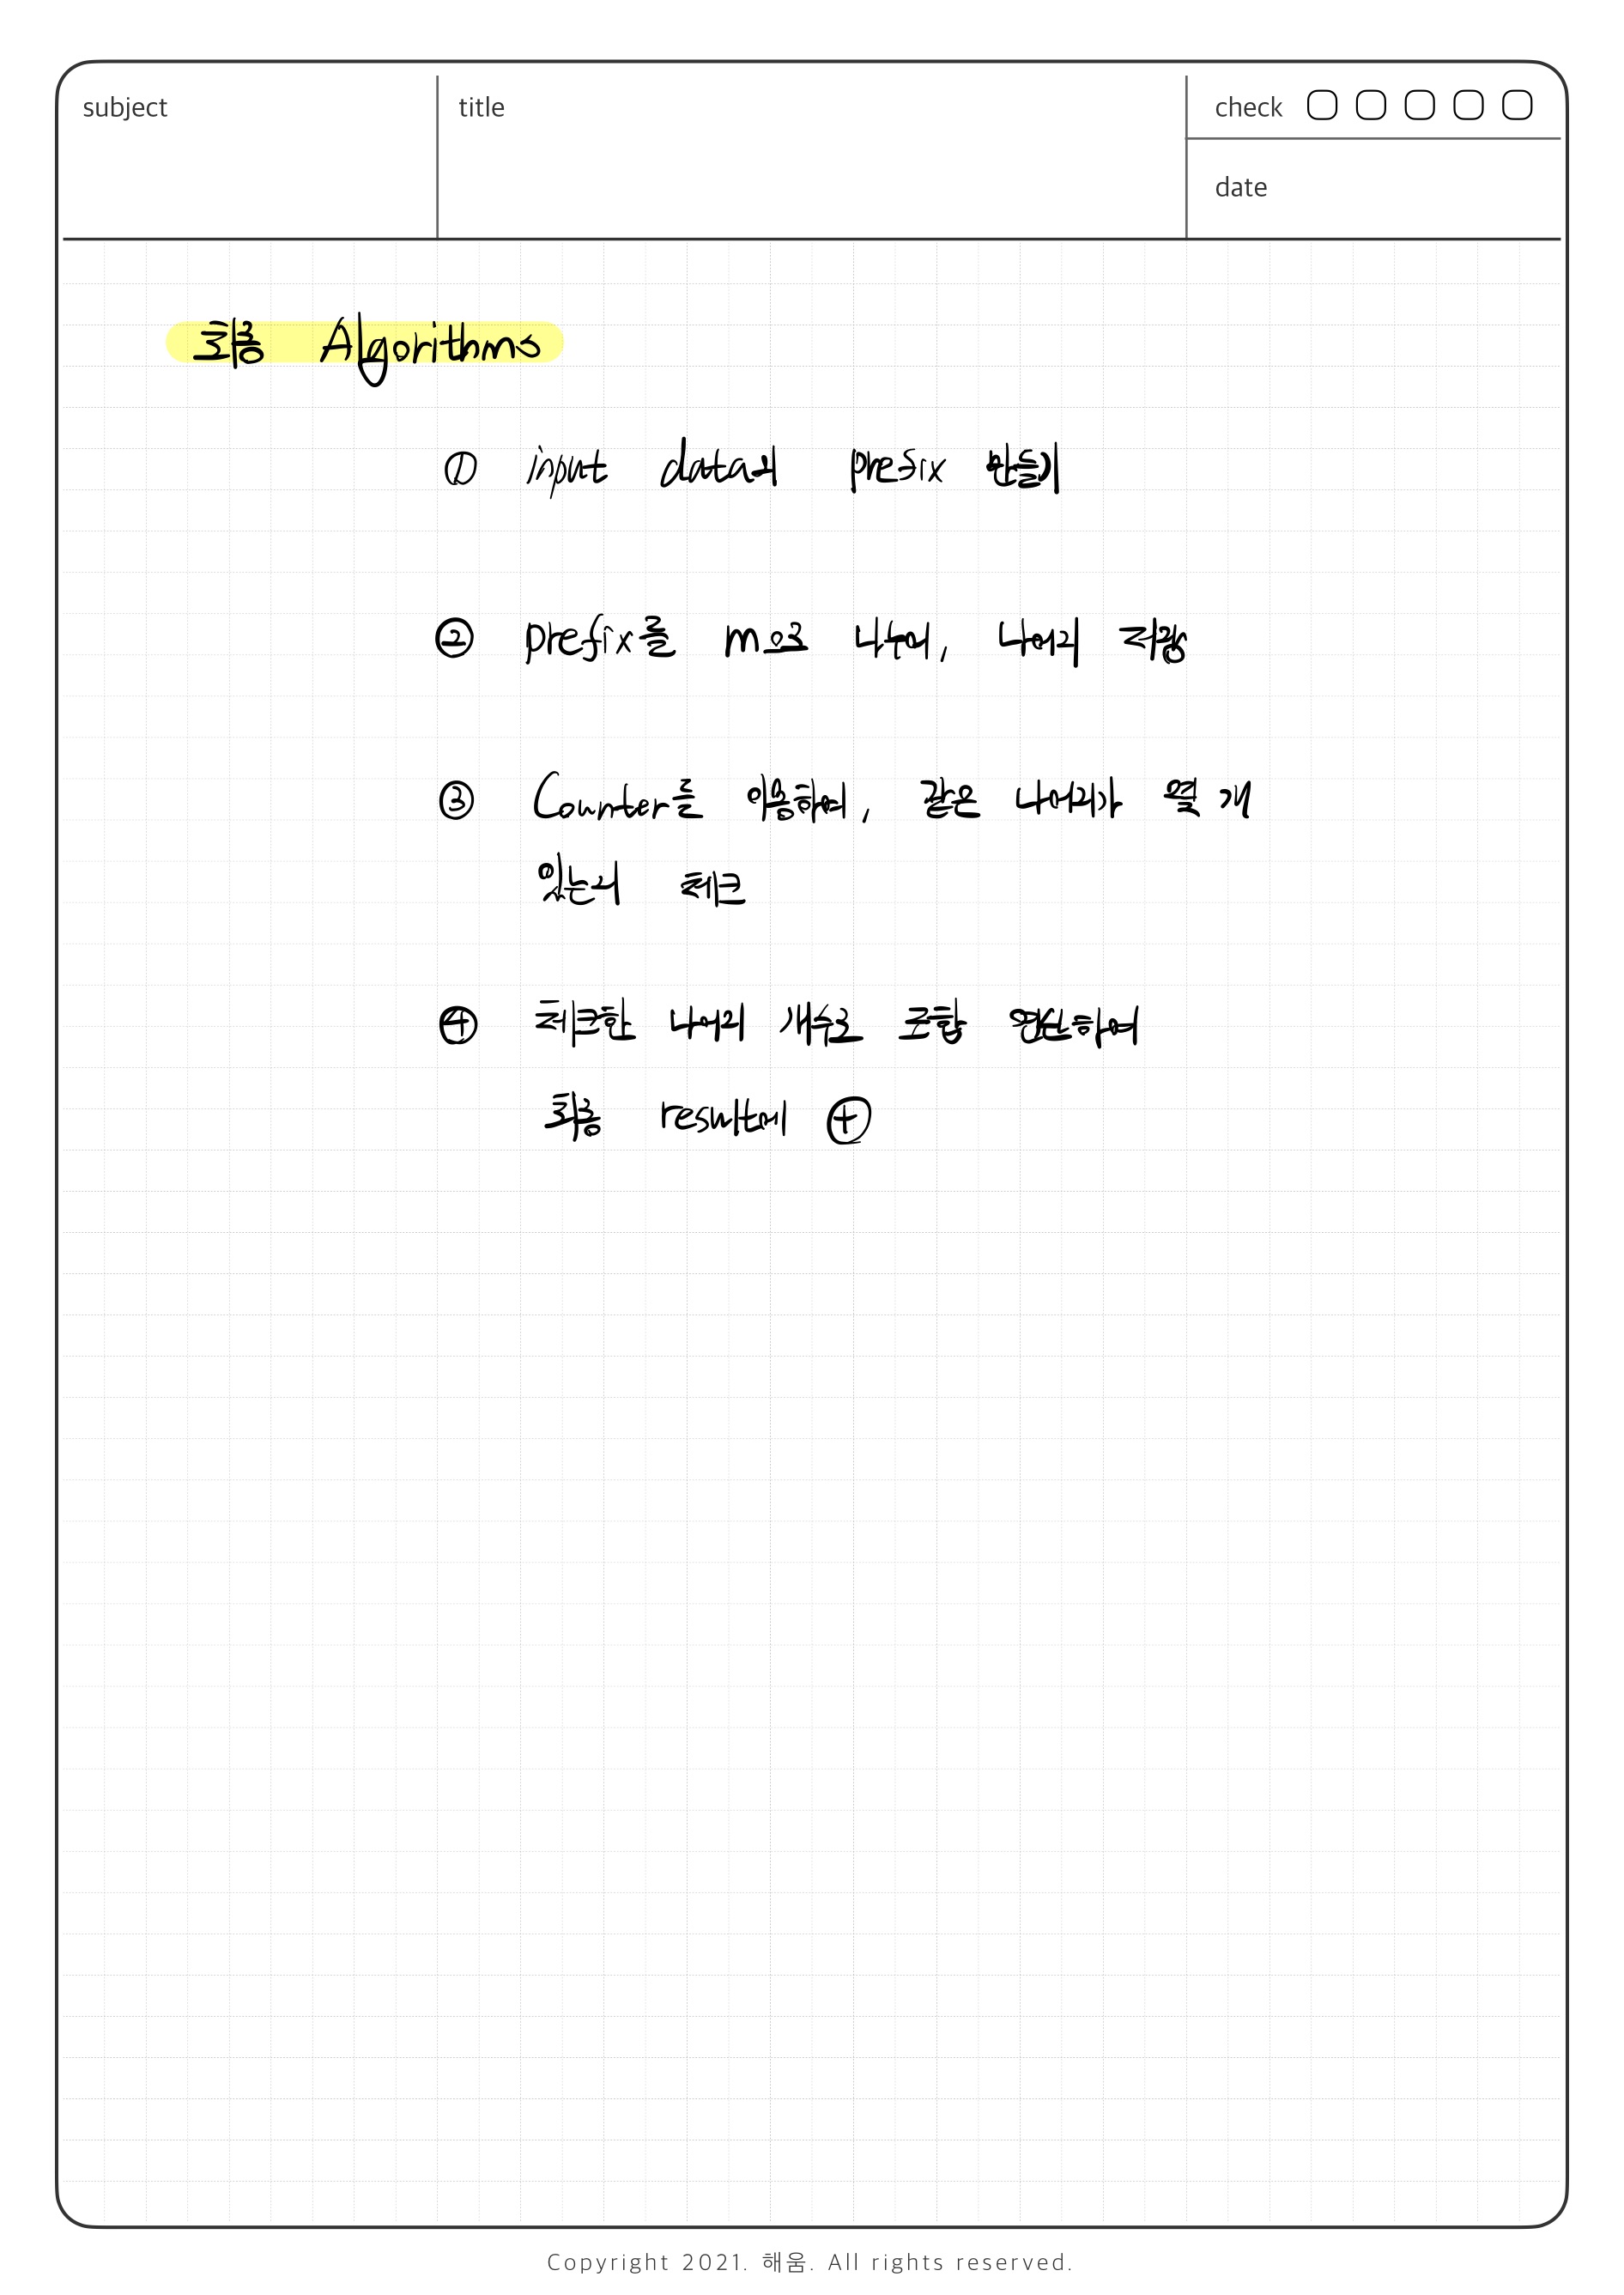 subject
title
check
date
최종 Algorithms
① input data의 prefix 만들기
② prefix를 m으로 나누어, 나머지 저장
③ Counter를 이용하여, 같은 나머지가 몇 개
있는지 체크
④ 체크한 나머지 개수로 조합 연산하여
최종 result에 ⊕
Copyright 2021. 해움. All rights reserved.